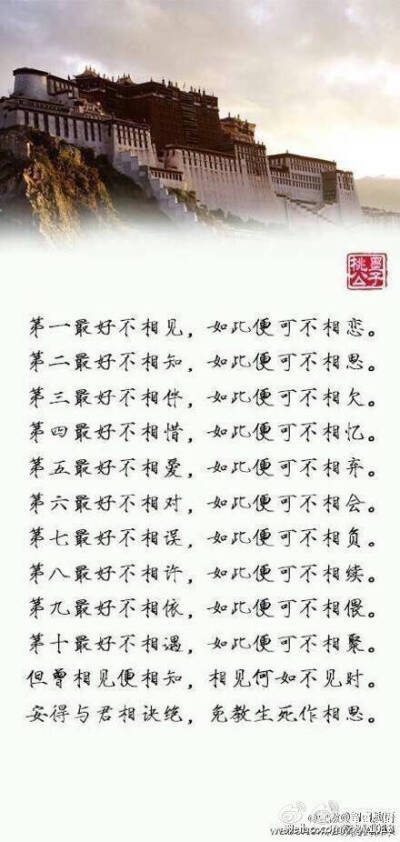 第一最好不相见，如此便可不相恋。
第二最好不相知，如此便可不相思。
第三最好不相伴，如此便可不相欠。
第四最好不相惜，如此便可不相忆。
第五最好不相爱，如此便可不相弃。
第六最好不相对，如此便可不相会。
第七最好不相误，如此便可不相负。
第八最好不相许，如此便可不相续。
第九最好不相依，如此便可不相偎。
第十最好不相遇，如此便可不相聚。
但曾相见便相知，相见何如不见时。
安得与君相诀绝，免教生死作相思。